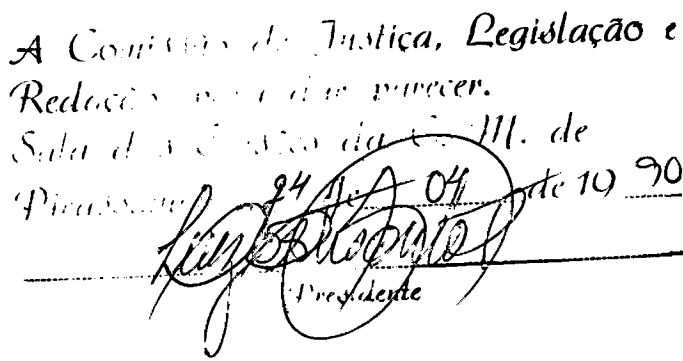 A Comissão de Justiça, Legislação e
Redação para dar parecer.
Sala das Sessões da C. M. de
Pirassununga, 24 de 04 de 19 90
Presidente